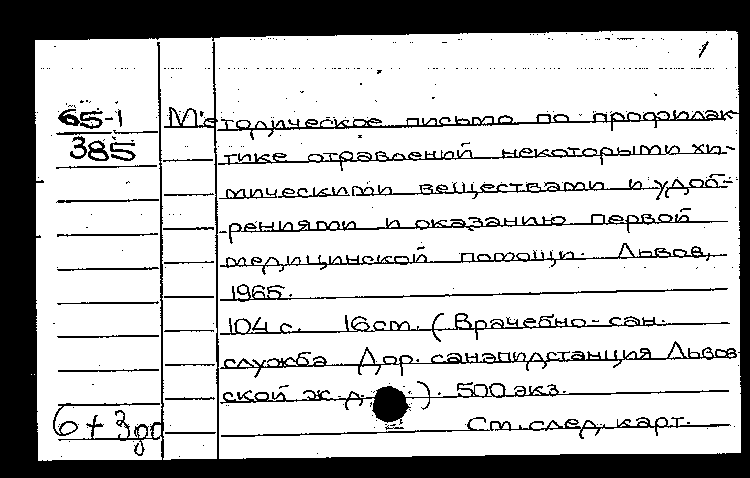 1
65-1 Методическое письмо по профилак-
385 тике отравлений некоторыми хи-
мическими веществами и удоб-
рениями и оказанию первой
медицинской помощи. Львов,
1965.
104 с. 16 см. (Врачебно-сан.
служба Дор. санэпидстанция Львов-
ской ж.д. ). 500 экз.
6+3 др См. след. карт.